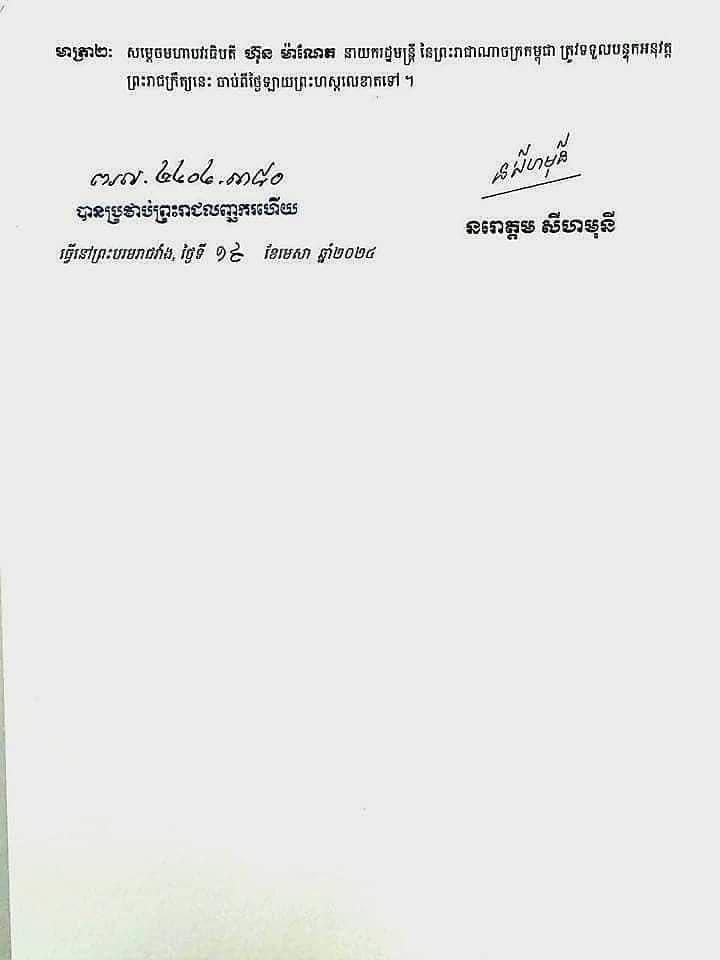 មាត្រា២: សម្តេចមហាបវរធិបតី ហ៊ុន ម៉ាណែត នាយករដ្ឋមន្ត្រី នៃព្រះរាជាណាចក្រកម្ពុជា ត្រូវទទួលបន្ទុកអនុវត្ត
ព្រះរាជក្រឹត្យនេះ ចាប់ពីថ្ងៃឡាយព្រះហស្តលេខាតទៅ ។
ព.រល.៤៤០៤.៣៨០
ន សីហមុនី
បានប្រថាប់ព្រះរាជលញ្ឆករហើយ
នរោត្តម សីហមុនី
ធ្វើនៅព្រះបរមរាជវាំង, ថ្ងៃទី ១៩ ខែមេសា ឆ្នាំ២០២៤